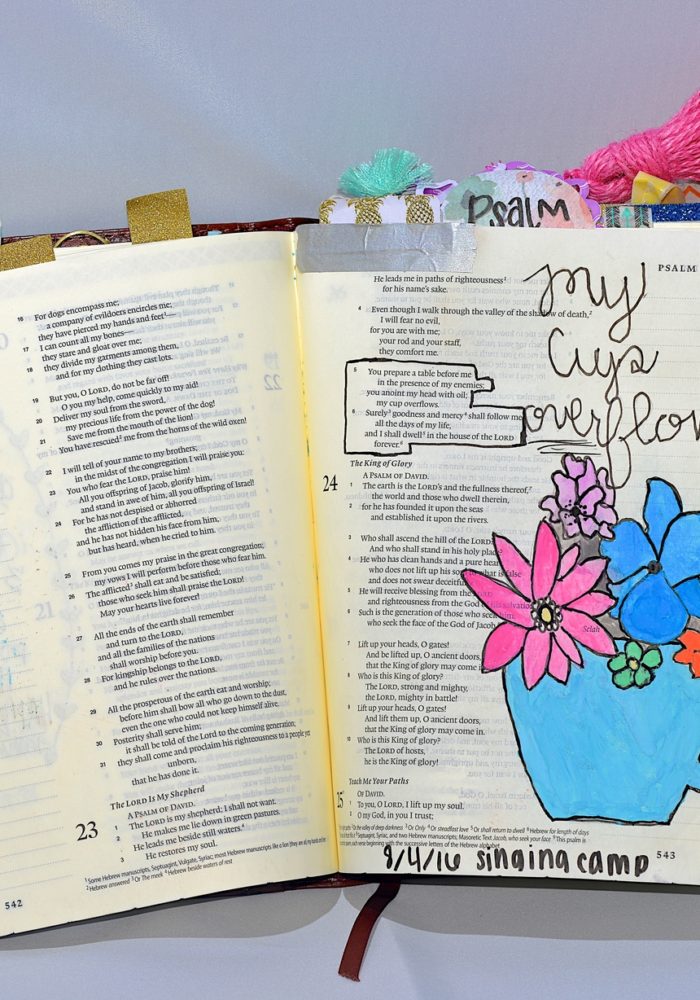 16 For dogs encompass me;
a company of evildoers encircles me;
they have pierced my hands and feet¹—
17 I can count all my bones—
they stare and gloat over me;
18 they divide my garments among them,
and for my clothing they cast lots.
19 But you, O LORD, do not be far off!
O you my help, come quickly to my aid!
20 Deliver my soul from the sword,
my precious life from the power of the dog!
21 Save me from the mouth of the lion!
You have rescued² me from the horns of the wild oxen!
22 I will tell of your name to my brothers;
in the midst of the congregation I will praise you:
23 You who fear the LORD, praise him!
All you offspring of Jacob, glorify him,
and stand in awe of him, all you offspring of Israel!
24 For he has not despised or abhorred
the affliction of the afflicted,
and he has not hidden his face from him,
but has heard, when he cried to him.
25 From you comes my praise in the great congregation;
my vows I will perform before those who fear him.
26 The afflicted³ shall eat and be satisfied;
those who seek him shall praise the LORD!
May your hearts live forever!
27 All the ends of the earth shall remember
and turn to the LORD,
and all the families of the nations
shall worship before you.
28 For kingship belongs to the LORD,
and he rules over the nations.
29 All the prosperous of the earth eat and worship;
before him shall bow all who go down to the dust,
even the one who could not keep himself alive.
30 Posterity shall serve him;
it shall be told of the Lord to the coming generation;
31 they shall come and proclaim his righteousness to a people yet
unborn,
that he has done it.
The LORD Is My Shepherd
A PSALM OF DAVID.
23 1 The LORD is my shepherd; I shall not want.
2 He makes me lie down in green pastures.
He leads me beside still waters.⁴
3 He restores my soul.
¹ Some Hebrew manuscripts, Septuagint, Vulgate, Syriac; most Hebrew manuscripts like a lion they are at my hands and feet
² Hebrew answered ³ Or The meek ⁴ Hebrew beside waters of rest
542
Psalm
PSALM
He leads me in paths of righteousness¹
for his name's sake.
4 Even though I walk through the valley of the shadow of death,²
I will fear no evil,
for you are with me;
your rod and your staff,
they comfort me.
5 You prepare a table before me
in the presence of my enemies;
you anoint my head with oil;
my cup overflows.
6 Surely³ goodness and mercy⁴ shall follow me
all the days of my life,
and I shall dwell⁵ in the house of the LORD
forever.⁶
my
cup
overflow
The King of Glory
24 A PSALM OF DAVID.
1 The earth is the LORD's and the fullness thereof,⁷
the world and those who dwell therein,
2 for he has founded it upon the seas
and established it upon the rivers.
3 Who shall ascend the hill of the LORD?
And who shall stand in his holy place?
4 He who has clean hands and a pure heart,
who does not lift up his soul to what is false
and does not swear deceitfully.
5 He will receive blessing from the LORD
and righteousness from the God of his salvation.
6 Such is the generation of those who seek him,
who seek the face of the God of Jacob.
Selah
7 Lift up your heads, O gates!
And be lifted up, O ancient doors,
that the King of glory may come in.
8 Who is this King of glory?
The LORD, strong and mighty,
the LORD, mighty in battle!
9 Lift up your heads, O gates!
And lift them up, O ancient doors,
that the King of glory may come in.
10 Who is this King of glory?
The LORD of hosts,
he is the King of glory!
Teach Me Your Paths
25 OF DAVID.
1 To you, O LORD, I lift up my soul.
2 O my God, in you I trust;
the valley of deep darkness ³ Or Only ⁴ Or steadfast love ⁵ Or shall return to dwell ⁶ Hebrew for length of days
Septuagint, Syriac, and two Hebrew manuscripts; Masoretic Text Jacob, who seek your face. This psalm is
beginning with the successive letters of the Hebrew alphabet
8/4/16 singing camp
543